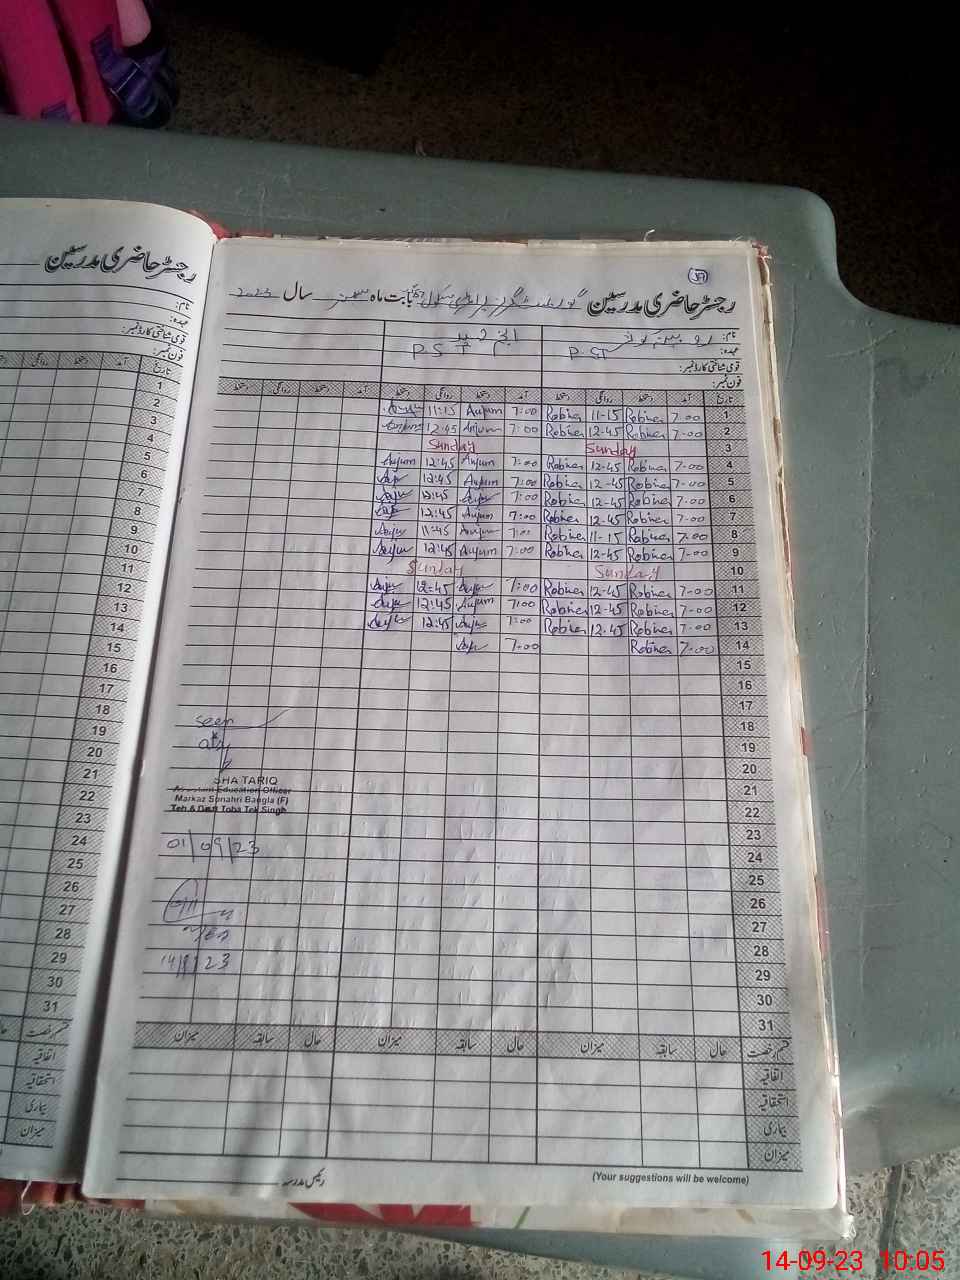 رجسٹر حاضری مدرسین
نام:
عہدہ:
قومی شناختی کارڈ نمبر:
فون نمبر:
تاریخ آمد دستخط روانگی دستخط
1
2
3
4
5
6
7
8
9
10
11
12
13
14
15
16
17
18
19
20
21
22
23
24
25
26
27
28
29
30
31
قسم رخصت حال
اتفاقیہ
استحقاقیہ
بیماری
میزان
رجسٹر حاضری مدرسین بابت ماہ ستمبر سال 2023
نام:
عہدہ: P.ST P.S T
قومی شناختی کارڈ نمبر:
فون نمبر:
تاریخ آمد دستخط روانگی دستخط آمد دستخط روانگی دستخط آمد دستخط روانگی دستخط
1 7-00 Robina 11-15 Robina 7:00 Anjum 11:15 Anjum
2 7-00 Robina 12-45 Robina 7:00 Anjum 12:45 Anjum
3 Sunday Sunday
4 7-00 Robina 12-45 Robina 7:00 Anjum 12:45 Anjum
5 7-00 Robina 12-45 Robina 7:00 Anjum 12:45
6 7-00 Robina 12-45 Robina 7:00 12:45
7 7-00 Robina 12-45 Robina 7:00 Anjum 12:45
8 7-00 Robina 11-15 Robina 7:00 Anjum 11:45 Anjum
9 7-00 Robina 12-45 Robina 7:00 Anjum 12:45 Anjum
10 Sunday Sunday
11 7-00 Robina 12-45 Robina 7:00 12:45
12 7-00 Robina 12-45 Robina 7:00 Anjum 12:45
13 7-00 Robina 12-45 Robina 7:00 12:45
14 7-00 Robina 7-00
15
16
17
18
19
20
21
22
23
24
25
26
27
28
29
30
31
seen
SHA TARIQ
Assistant Education Officer
Markaz Sonahri Bangla (F)
Teh & Distt Toba Tek Singh
01/09/23
14/9/23
قسم رخصت حال سابقہ میزان حال سابقہ میزان حال سابقہ میزان
اتفاقیہ
استحقاقیہ
بیماری
میزان
رئیس مدرسہ
(Your suggestions will be welcome)
14-09-23 10:05